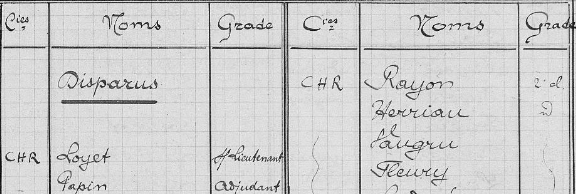 Cies Noms Grade
Disparus
CHR Loyet S/Lieutenant
Papin Adjudant
Cies Noms Grade
CHR Rayon 2e cl.
Herriau D
Jaugru
Fleury